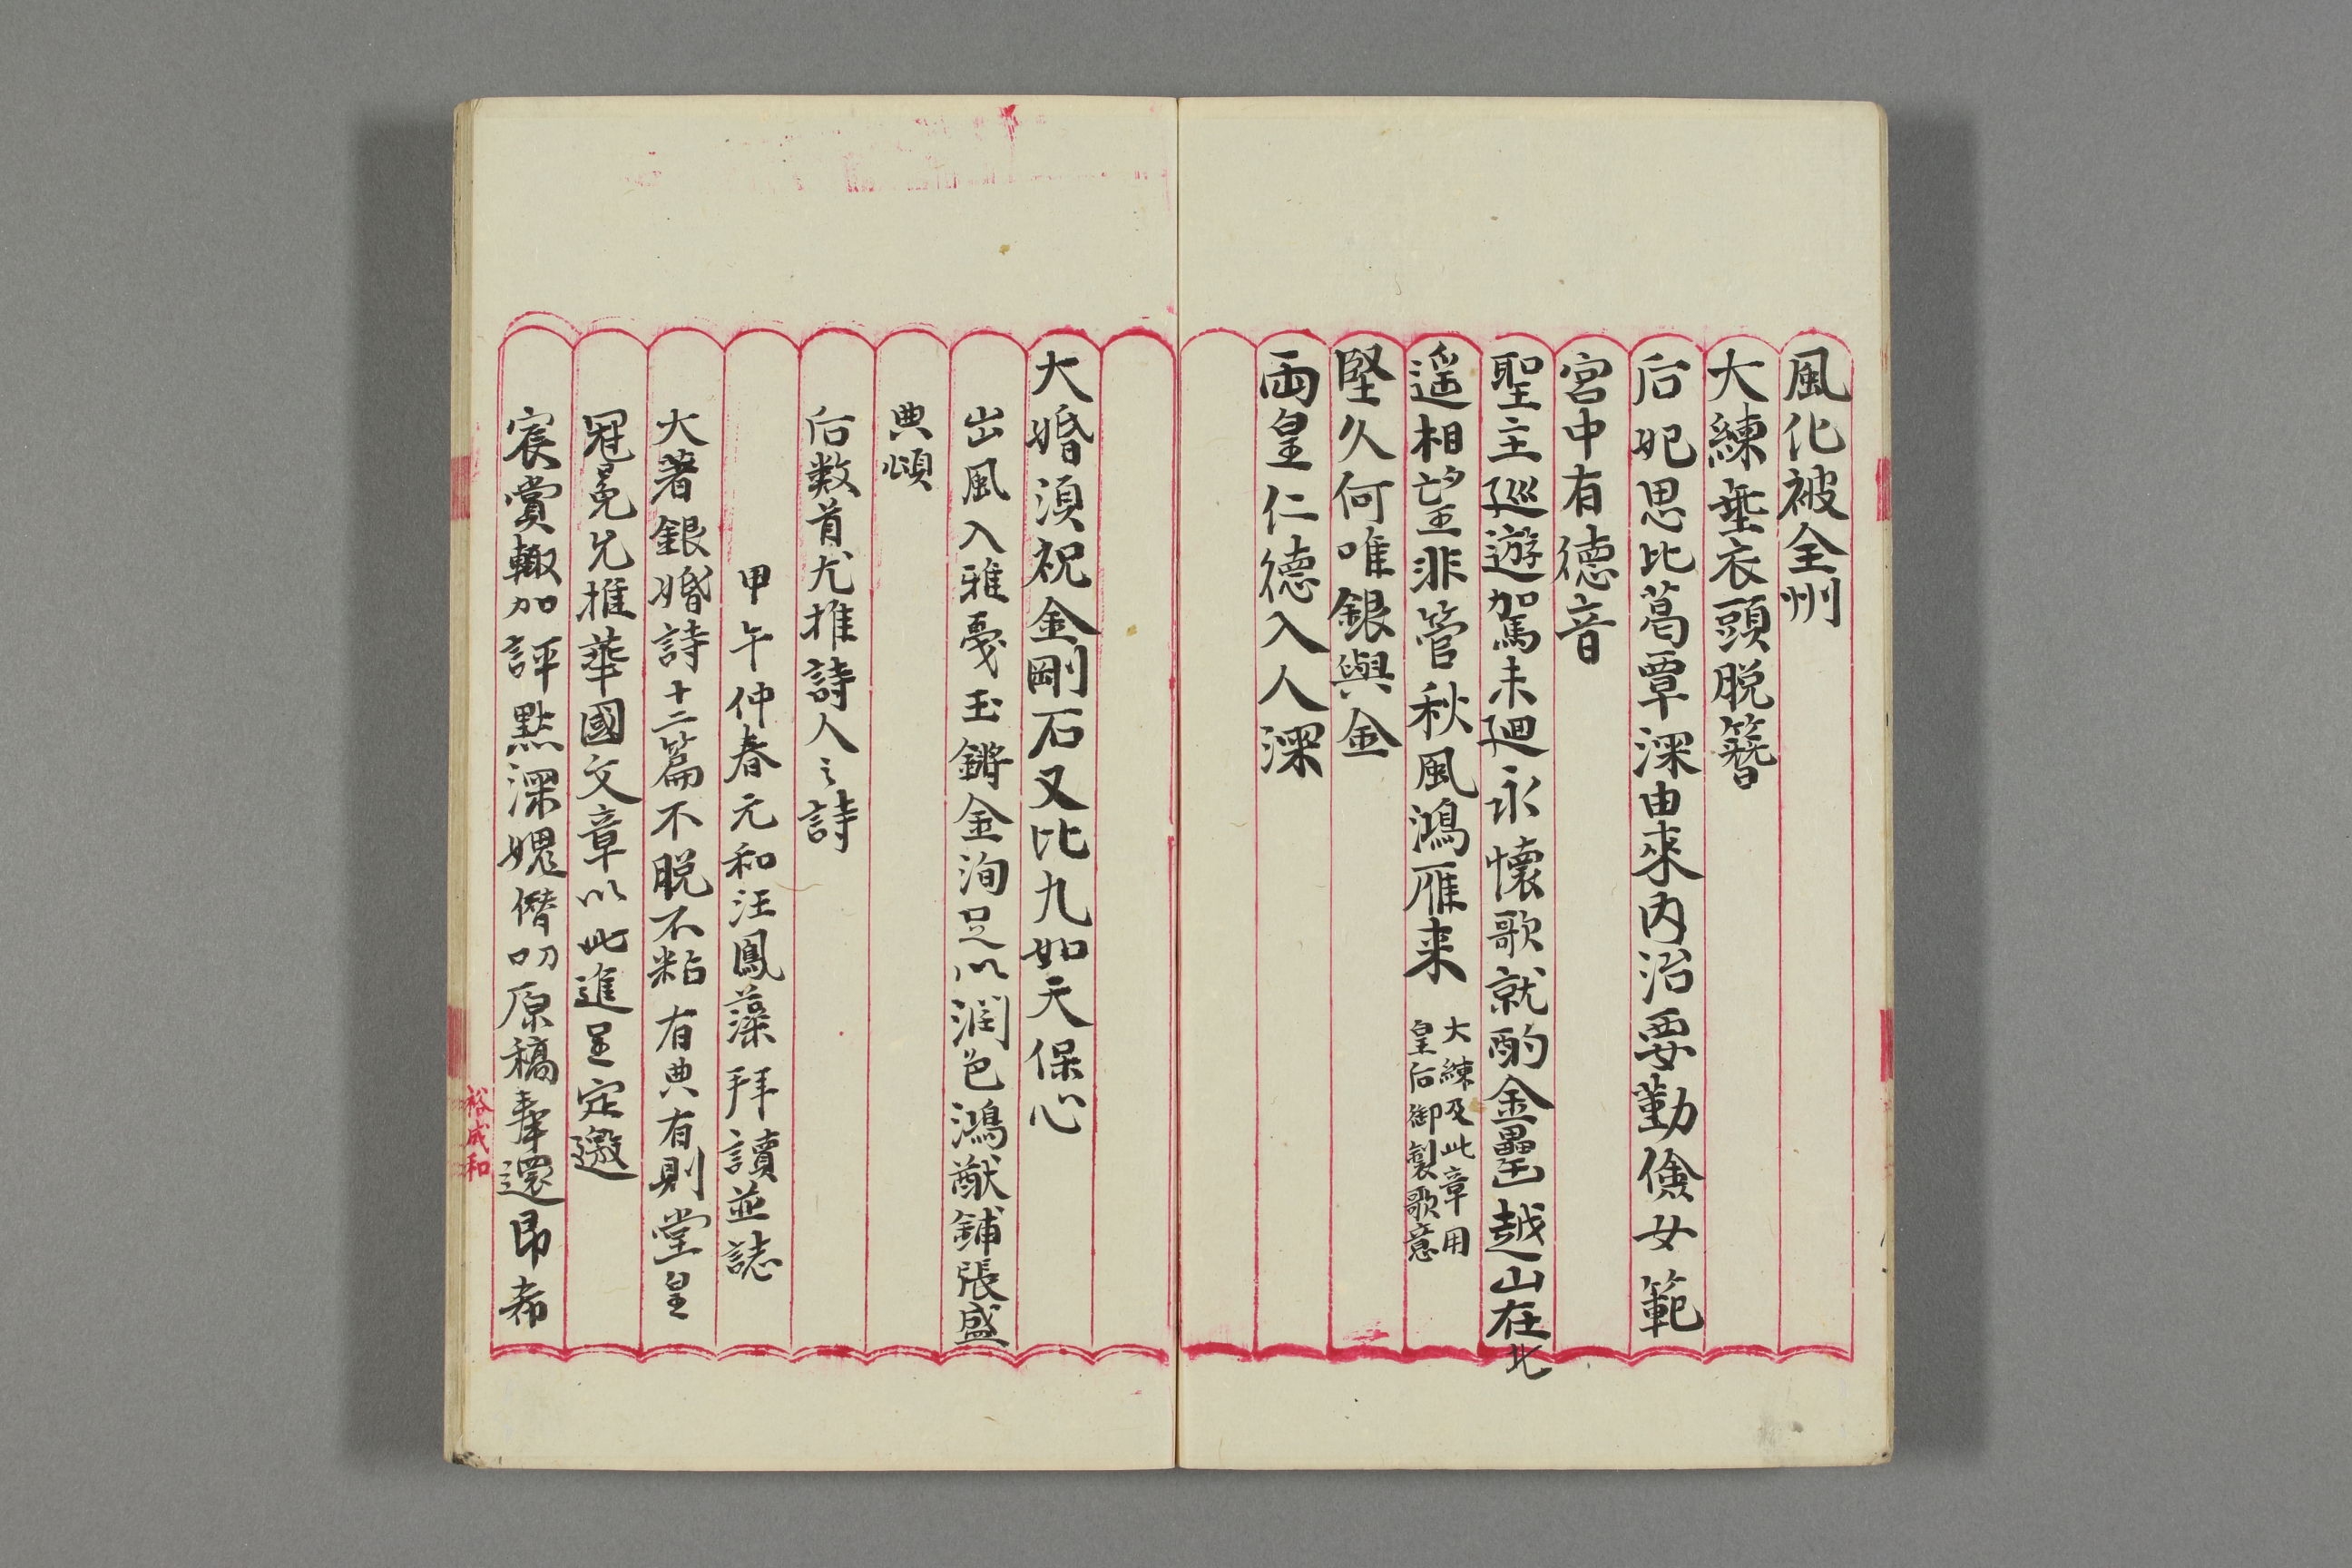 風化被全州
大練垂衣頭脱簪
后妃思比葛覃深由來内治要勤儉女範
宮中有德音
聖主巡遊駕未廻永懷歌就酌金罍越山在北
遥相望非管秋風鴻雁来
大練及此章用
皇后御製歌意
堅久何唯銀與金
兩皇仁德入人深
大婚須祝金剛石又比九如天保心
出風入雅戞玉鏘金洵足以潤色鴻猷鋪張盛
典頌
后数首尤推詩人之詩
甲午仲春元和汪鳳藻拜讀並誌
大著銀婚詩十二篇不脱不粘有典有則堂皇
冠冕允推華國文章以此進呈定邀
宸賞輙加評點深媿僭叨原稿奉還昂希
裕成和